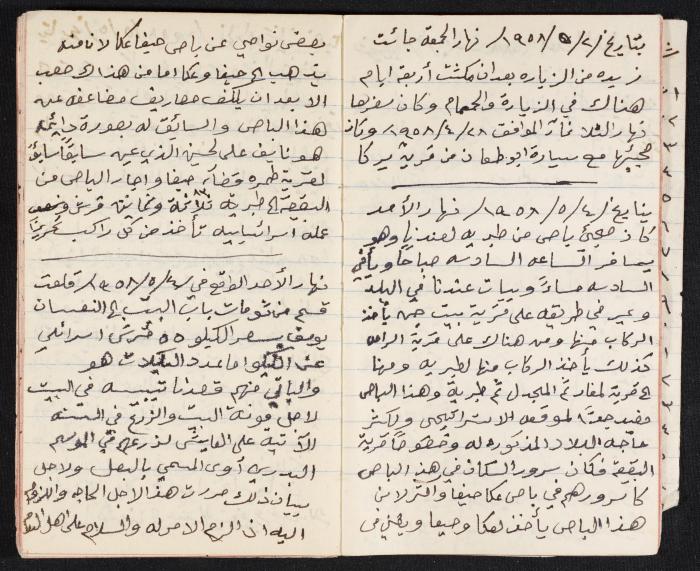 بتاريخ /٢/ ٥/ ١٩٥٨/ نهار الجمعة جائت
من الزياره بعد ان مكثت أربعة ايام
هناك في الزيارة والحمام وكان سفرها
نهار الثلاثاء الموافق ٢٨/ ٤/ ١٩٥٨/ وكان
مع سيارة ابو طعان من قرية يركا
بتاريخ /٤/ ٥/ ١٩٥٨/ نهار الأحد
كان مجيئ باص من طبريه لعندنا وهو
يسافر الساعه السادسه صباحاً ويأتي
السادسه مساءً ويبات عندنا في البلد
وعبر في طريقه على قرية بيت جن يأخذ
الركاب منها ومن هناك على قرية الرامه
كذلك يأخذ الركاب منها لطبريه ومنها
الى قرية لمغار ثم المجدل ثم طبرية وهذا الباص
مفيد جداً لموقعه الاستراتيجي ولكثر
حاجه البلاد المذكوره له وخصوصاً قرية
البقيعة فكان سرور السكان في هذا الباص
كما سرورهم في باص عكا حيفا واكثر لان
هذا الباص يأخذ لعكا وحيفا
بعض نواحي عن باص حيفا عكا لانه منه
يذهب الى حيفا وعكا اما من هذاك صعب
الا بعد ان يكلف مصاريف مضاعفه عن
هذا الباص والسائق له بصورة دائمة
هو نايف على لحسن الذي عين سايقاً سابقاً
لقرية طمره قضاء حيفا واجار الباص من
البقيعة الى طبريه ٨٣ ثلاثة وثمانية قرش ونصف
عمله اسرائيلية تأخذ من كل راكب تقريباً
نهار الأحد الواقع في /٤/ ٥/ ١٩٥٨/ قلعت
قسم من ثومات باب البيت الى النعسان
يوسف بسعر الكيلو ٥٥ قرش اسرائيلي
عن الكيلو اما عدد الثلاث هو
والباقي منهم قصدنا تيبيسه في البيت
لاجل مونة البيت والزرع في السنه
الآتيه على العايش لزرعهم في الموسم
البدري أوى المسمى بالبعل ولاجل
بيان ذلك حررت هذا لاجل الحاجه
اليه اذا لزم الامر له والسلام على اهل